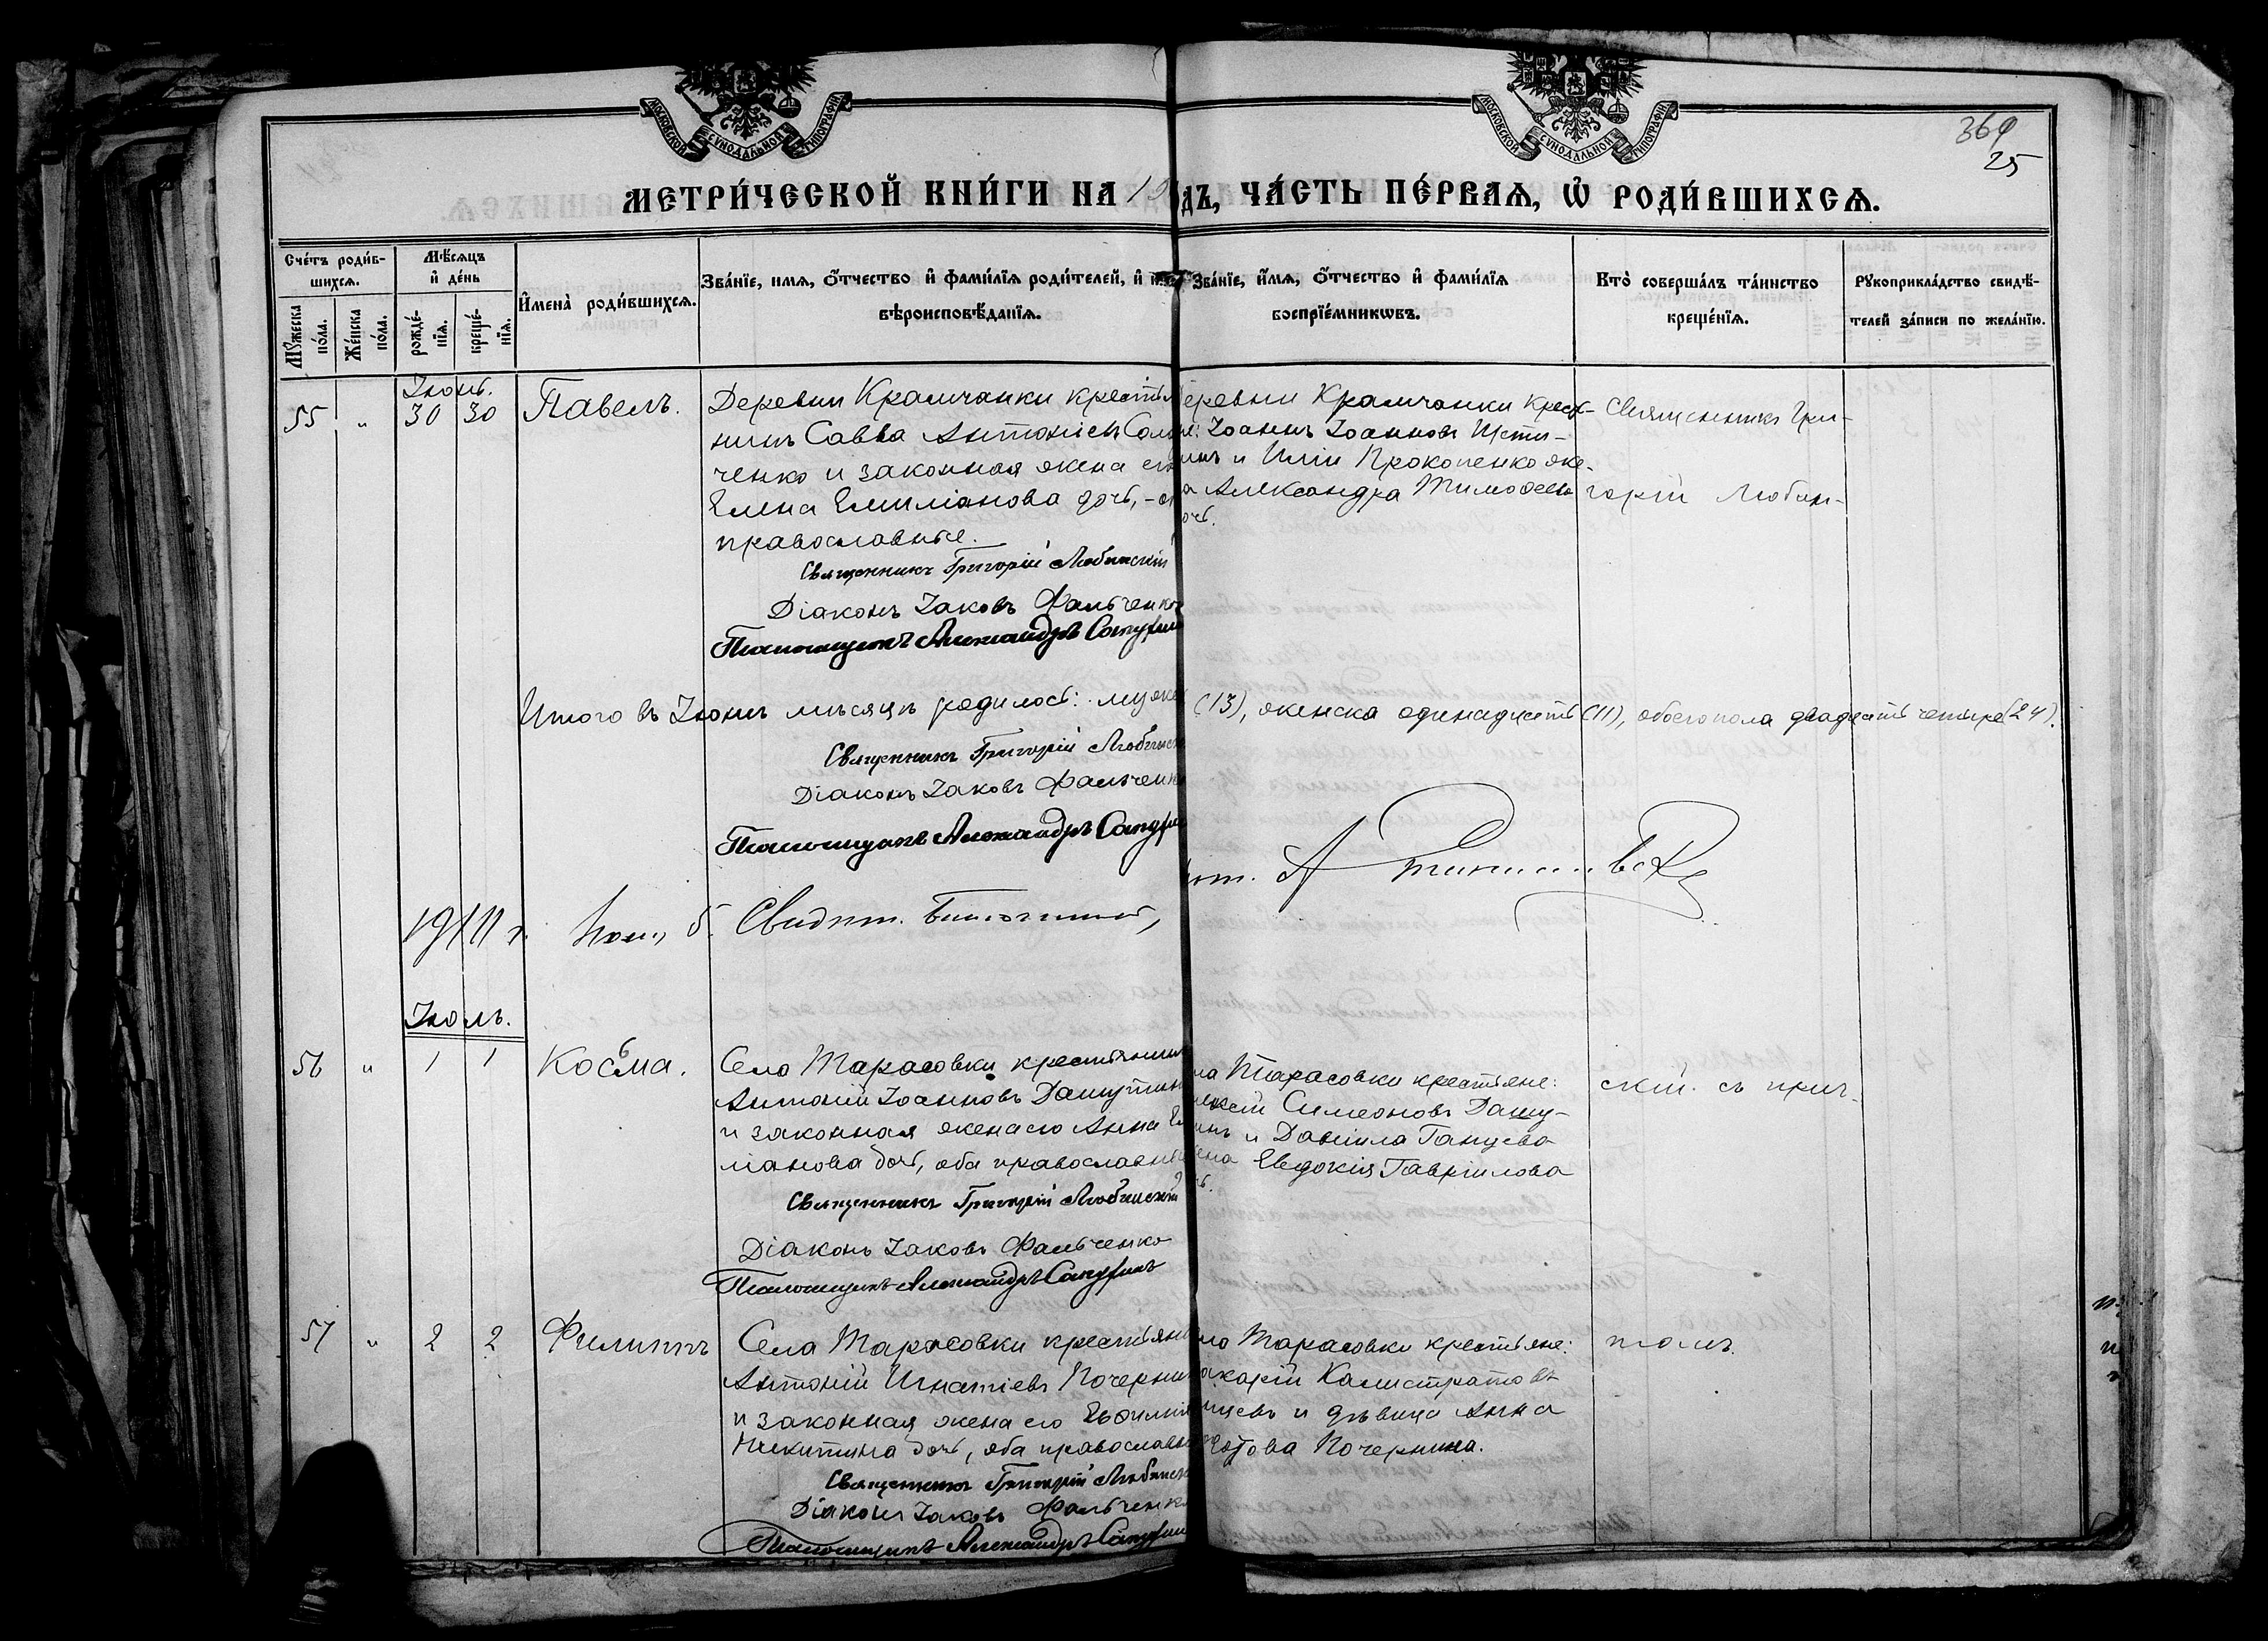 МОСКОВСКОЙ СѴНОДАЛЬНОЙ ТИПОГРАФІИ
МОСКОВСКОЙ СѴНОДАЛЬНОЙ ТИПОГРАФІИ
369
25
МЕТРИ́ЧЕСКОЙ КНИ́ГИ НА 19
ДЪ, ЧА́СТЬ ПЕ́РВАѦ, Ѿ РОДИ́ВШИХСѦ.
Сче́тъ роди́в-
шихсѧ.
Мꙋжеска по́ла.
Же́нска по́ла.
Мѣ́сѧцъ
и҆ де́нь
рожде́-
нїѧ.
креще́-
нїѧ.
И҆мена̀ роди́вшихсѧ.
Зва́нїе, имѧ, ѻ҆́тчество и҆ фами́лїѧ роди́телей, и҆
вѣроисповѣ́данїѧ.
Зва́нїе, и҆́мѧ, ѻ҆́тчество и҆ фами́лїѧ
воспрїе́мникѡвъ.
Кто̀ соверша́лъ та́инство
креще́нїѧ.
Рꙋкоприкла́дство свидѣ́-
телей за́писи по жела́нїю.
Іюнь.
55 " 30 30 Павелъ.
Деревни Крамчанки крестья
нинъ Савва Антоніевъ Сол
ченко и законная жена его
Елена Емиліанова дочь, -
православные.
Священникъ Григорій Любинскій
Діаконъ Іаковъ Фальченко
Псаломщикъ Александръ
еревни Крамчанки крест-
Іоаннъ Іоанновъ Исти-
инъ и Иліи Прокопенко же-
а Александра Тимофеева
очь.
Священникъ Гри-
горій Любин-
Итого въ Іюнѣ мѣсяцѣ родилось: муже
(13), женска одинадцать (11), обоего пола двадцать четыре (24).
Священникъ Григорій Любинск
Діаконъ Іаковъ Фальченк
Псаломщикъ Александръ
1911 г. 5. Свидѣт.
Іюль.
56 " 1 1 Косьма.
Села Тарасовки крестьянин
Антоній Іоанновъ Дашутин
и законная жена его Анна Е
ліанова дочь, оба православны
Священникъ Григорій Любинскій
Діаконъ Іаковъ Фальченко
Псаломщикъ Александръ
ла Тарасовки крестьяне:
Симеоновъ Дашу-
инъ и Даніила Ганцева
ена Евдокія Гавріилова
скій съ прич-
57 " 2 2 Филиппъ
Села Тарасовки крестьян
Антоній Игнатіевъ Почерни
и законная жена его Евфимія
Никитина дочь, оба православн
Священникъ Григорій Любинск
Діаконъ Іаковъ Фальченк
Псаломщикъ Александръ
ла Тарасовки крестьяне:
акарій Калистратовъ
нцевъ и дѣвица Анна
Почернина.
томъ.